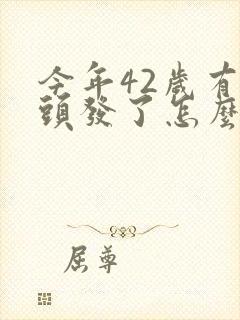 今年42歲有
頭發了怎麼
屈尊